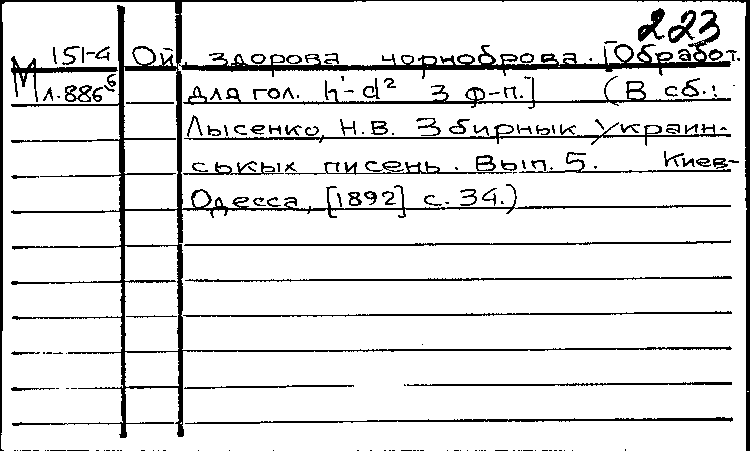 223
М 151-4 Ой, здорова чорноброва. [Обработ.
Л.886б для гол. h'-d² з ф-п.] (В сб.:
Лысенко, Н.В. Збирнык Украин-
ськых писень. Вып. 5. Киев-
Одесса, [1892] с. 34.)